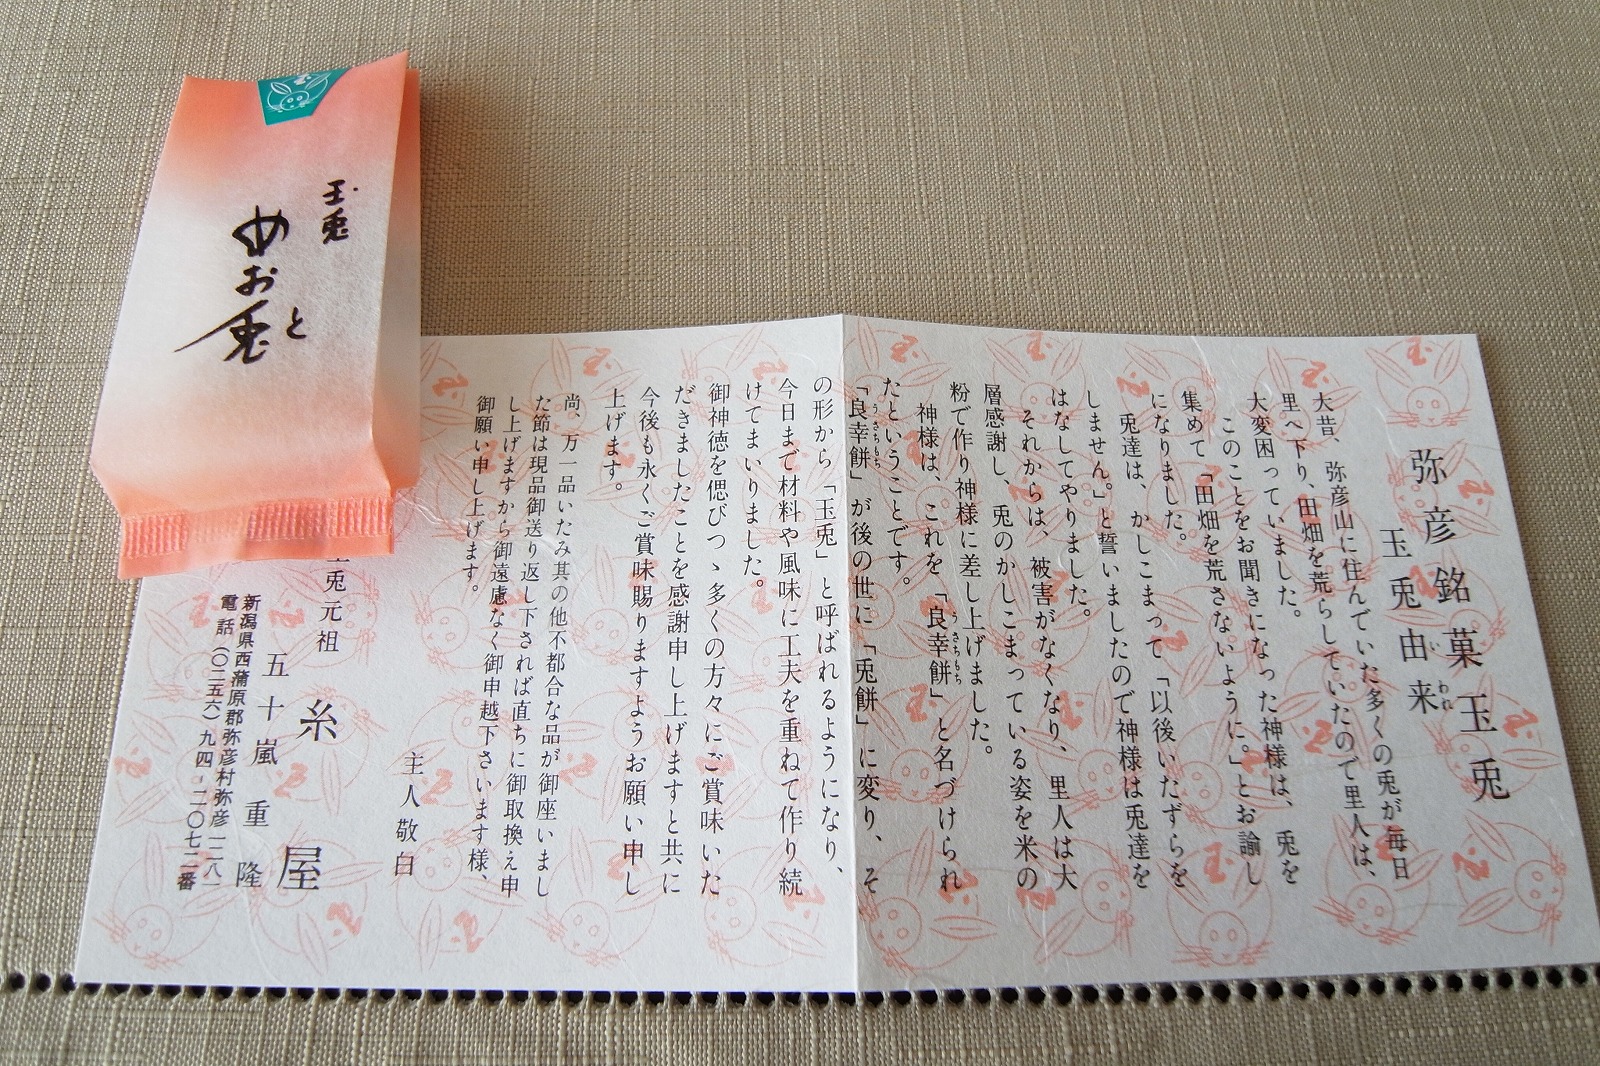 玉兎
めおと兎
弥彦銘菓玉兎
玉兎由来
いわれ
大昔、弥彦山に住んでいた多くの兎が毎日
里へ下り、田畑を荒らしていたので里人は、
大変困っていました。
このことをお聞きになった神様は、兎を
集めて「田畑を荒さないように。」とお諭し
になりました。
兎達は、かしこまって「以後いたずらを
しません。」と誓いましたので神様は兎達を
はなしてやりました。
それからは、被害がなくなり、里人は大
層感謝し、兎のかしこまっている姿を米の
粉で作り神様に差し上げました。
神様は、これを「良幸餅」と名づけられ
うさちもち
たということです。
「良幸餅」が後の世に「兎餅」に変り、そ
うさちもち
の形から「玉兎」と呼ばれるようになり、
今日まで材料や風味に工夫を重ねて作り続
けてまいりました。
御神徳を偲びつゝ多くの方々にご賞味いた
だきましたことを感謝申し上げますと共に
今後も永くご賞味賜りますようお願い申し
上げます。
尚、万一品いたみ其の他不都合な品が御座いまし
た節は現品御送り返し下されば直ちに御取換え申
し上げますから御遠慮なく御申越下さいます様、
御願い申し上げます。
主人敬白
玉兎元祖 糸屋
五十嵐重隆
新潟県西蒲原郡弥彦村弥彦一二八一
電話(〇二五六)九四-二〇七二番